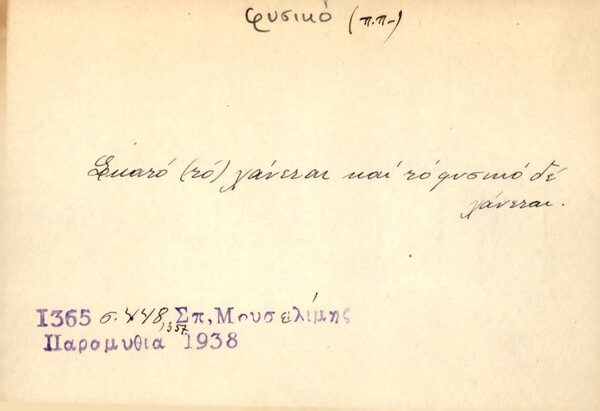 φυσικό (π.π.)
Εκατό (τό) χάνεται καί τό φυσικό δέ
χάνεται.
1365 σ. 448, 1357 Σπ, Μουσελίμης
Παραμυθια 1938